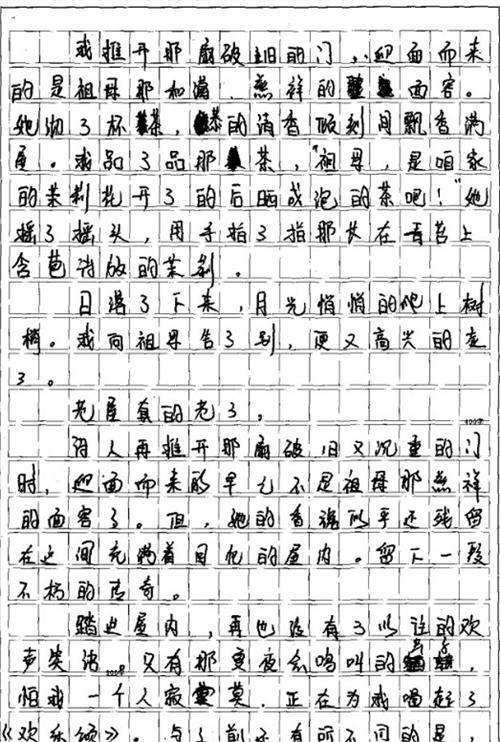 我推开那扇破旧的门,迎面而来
的是祖母那和蔼、慈祥的面容。
她沏了杯茶,茶的清香顷刻间飘香满
屋。我品了品那茶,"祖母,是咱家
的茉莉花开了的后晒成泡的茶吧!"她
摇了摇头,用手指了指那长在青苔上
含苞待放的茉莉。
日落了下来,月光悄悄的爬上树
梢。我向祖母告了别,便又高兴的走
了。
老屋真的老了。
得人再推开那扇破旧又沉重的门
时,迎面而来的早已不是祖母那慈祥
的面容了。但,她的香魂似乎还残留
在这间充满着回忆的屋内。留下一段
不朽的传奇。
踏进屋内,再也没有了以往的欢
声笑语。又有那夏夜会鸣叫的
怕我一个人寂寞,正在为我唱起了
《欢乐颂》。与之前还有所不同的是,